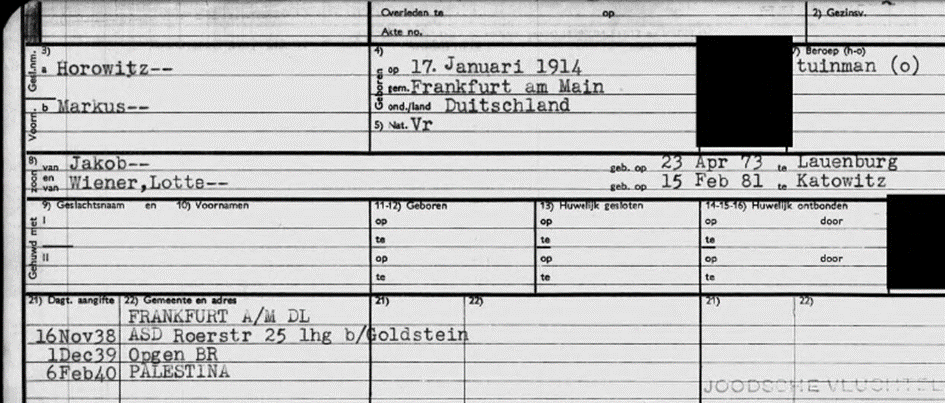 Overleden te op 2) Gezinsv.
Akte no.
3) Gesl.nm. a Horowitz--
4) Geboren op 17. Januari 1914
Beroep (h-o)
tuinman (o)
gem. Frankfurt am Main
Voorn. b Markus--
ond./land Duitschland
5) Nat. Vr
8) zoon van Jakob-- geb. op 23 Apr 73 te Lauenburg
en van Wiener,Lotte-- geb. op 15 Feb 81 te Katowitz
9) Geslachtsnaam en 10) Voornamen 11-12) Geboren 13) Huwelijk gesloten 14-15-16) Huwelijk ontbonden
Gehuwd met I op op op door
te te te
II op op op door
te te te
21) Dagt. aangifte 22) Gemeente en adres 21) 22) 21) 22)
FRANKFURT A/M DL
16Nov38 ASD Roerstr 25 lhg b/Goldstein
1Dec39 Opgen BR
6Feb40 PALESTINA
JOODSCHE VLUCHTEL